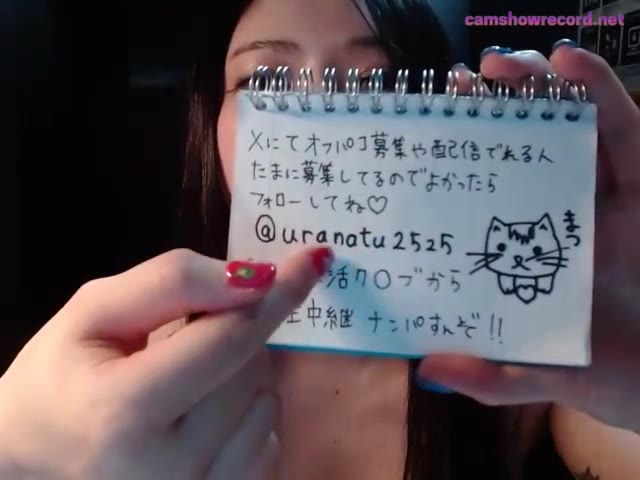 camshowrecord.net
Xにてオフパコ募集や配信でれる人
たまに募集してるのでよかったら
フォローしてね♡
@uranatu2525
活ク〇ブから
中継 ナンパすんぞ!!
まつ